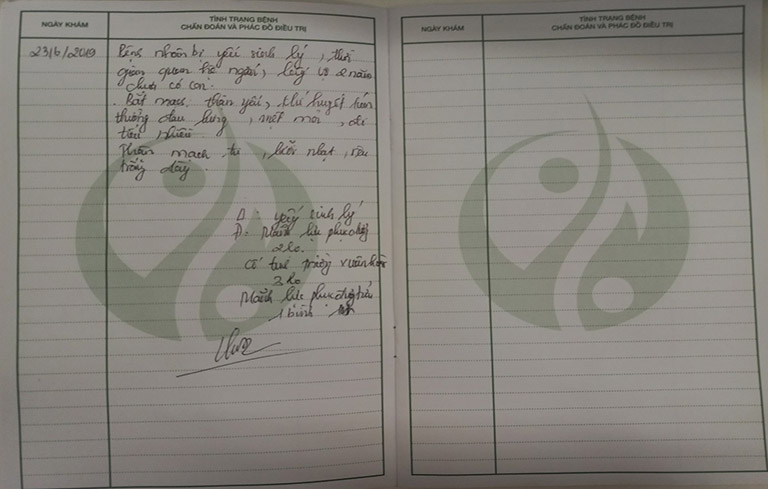 NGÀY KHÁM
TÌNH TRẠNG BỆNH
CHẨN ĐOÁN VÀ PHÁC ĐỒ ĐIỀU TRỊ
23/6/2019
Bệnh nhân bị yếu sinh lý, thời
gian quan hệ ngắn, lấy vợ 2 năm
chưa có con.
. Bắt mạch: thận yếu, khí huyết kém
thường đau lưng, mệt mỏi, đi
tiểu nhiều.
Thận mạch hư, lưỡi nhạt, rêu
trắng dày.
Δ: yếu sinh lý
Đ: Mãnh lực phục
2 lọ.
Cố tinh
2 lọ
Mãnh lực phục
1 bình
NGÀY KHÁM
TÌNH TRẠNG BỆNH
CHẨN ĐOÁN VÀ PHÁC ĐỒ ĐIỀU TRỊ